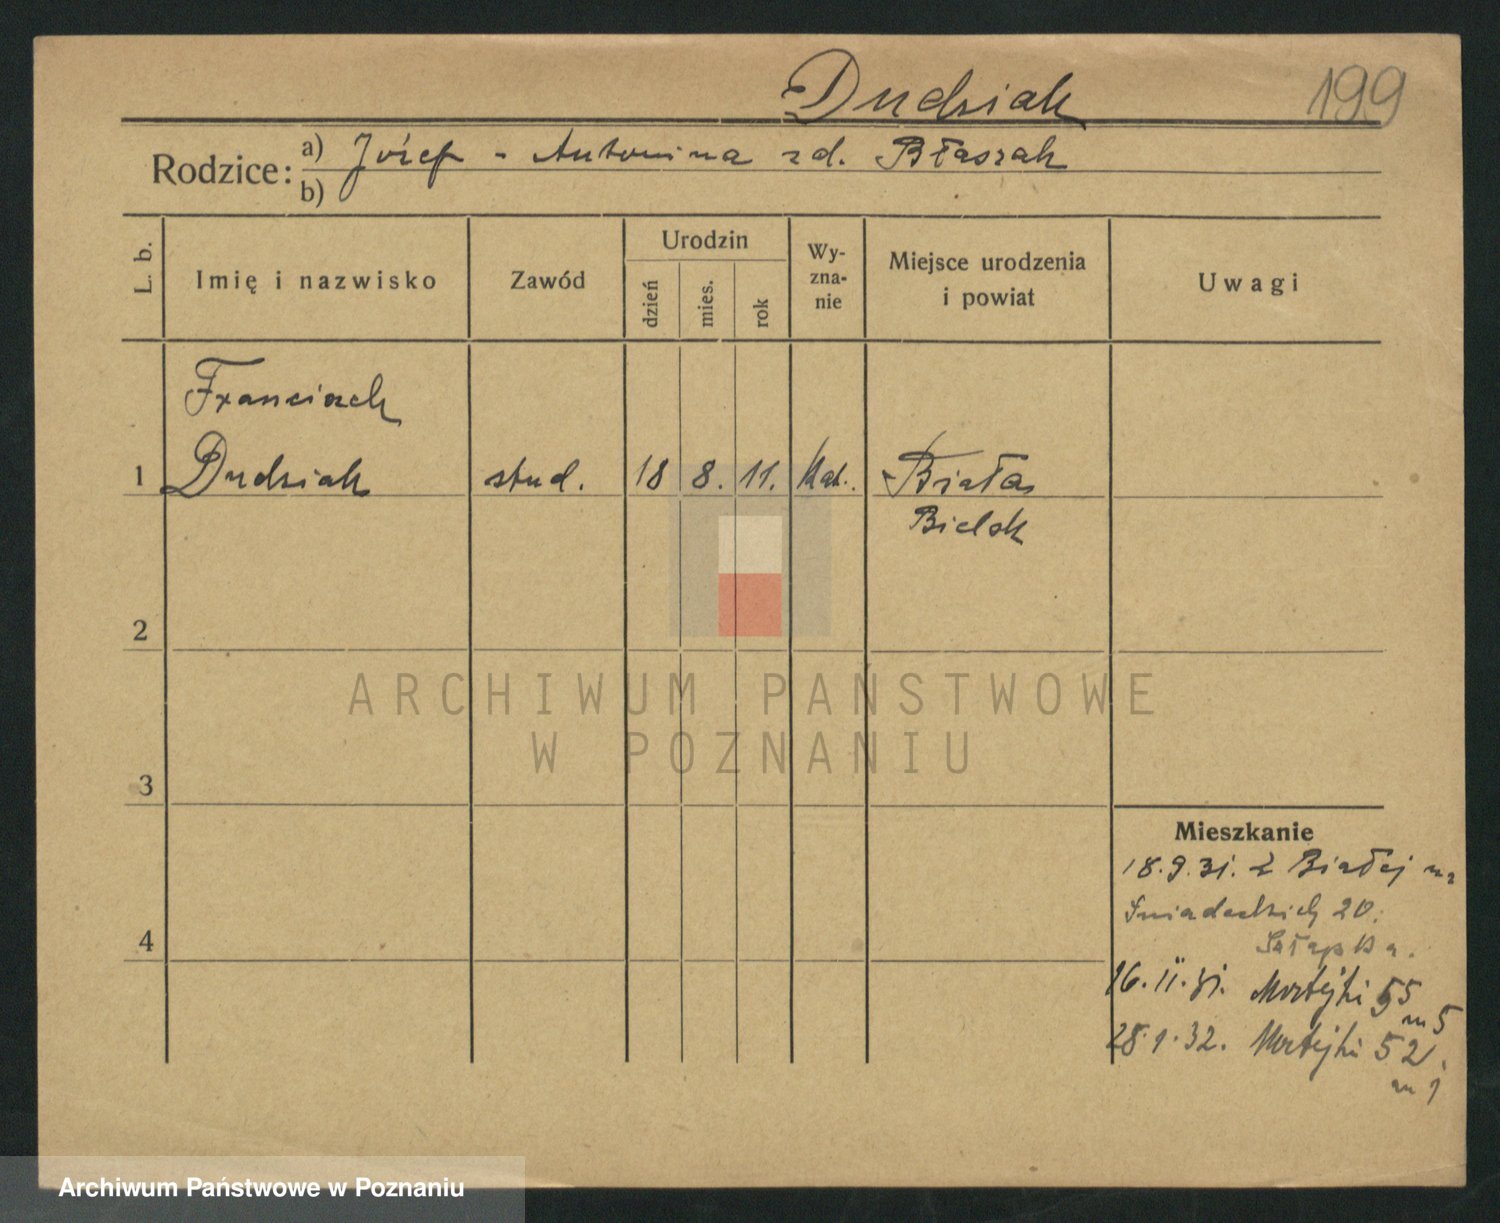 Dudziak
199
Rodzice: a) Józef - Antonina zd. Błaszak
b)
L. b.
Imię i nazwisko
Zawód
Urodzin
dzień
mies.
rok
Wy-
zna-
nie
Miejsce urodzenia
i powiat
Uwagi
Franciszek
1 Dudziak stud. 18 8. 11. kat. Biała
Bielsk
2
3
4
Mieszkanie
18.9.31. z Białej na
Śniadeckich 20.
16.11.31. Matejki 55
m 5
28.1.32. Matejki 52
m 1
ARCHIWUM PAŃSTWOWE
W POZNANIU
Archiwum Państwowe w Poznaniu